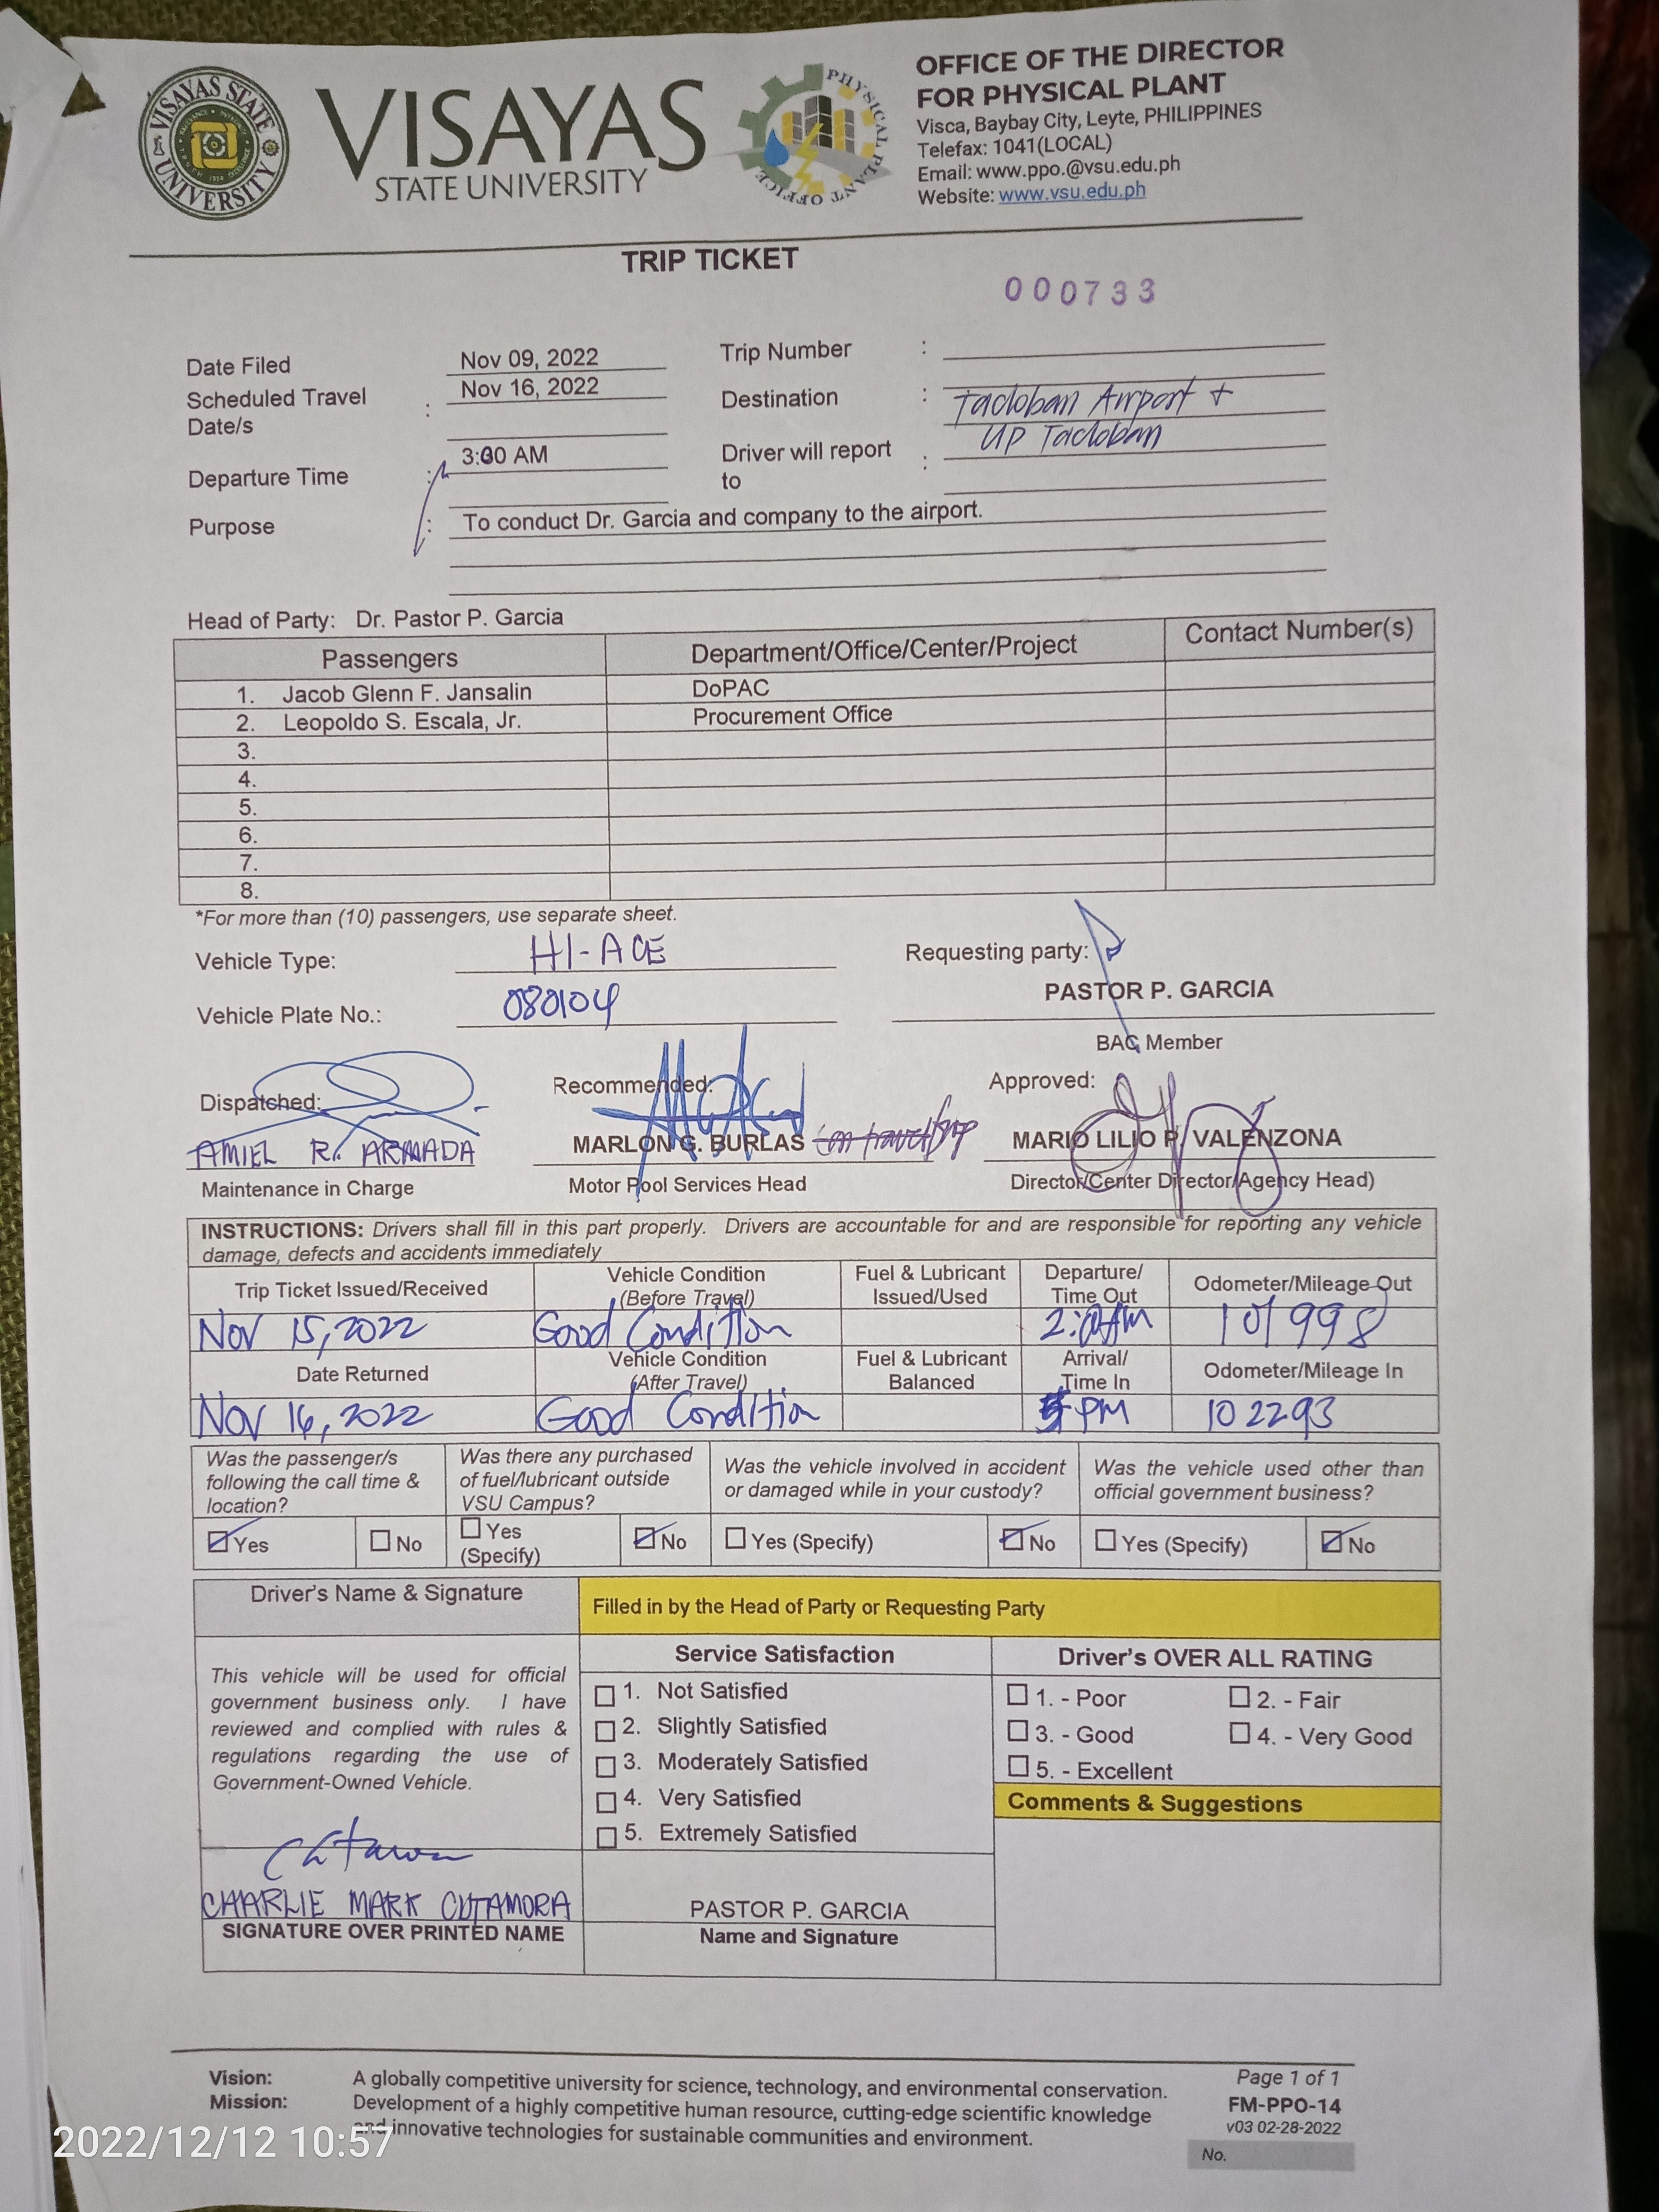 VISAYAS STATE UNIVERSITY
PHYSICAL PLANT OFFICE
VISAYAS
STATE UNIVERSITY
OFFICE OF THE DIRECTOR
FOR PHYSICAL PLANT
Visca, Baybay City, Leyte, PHILIPPINES
Telefax: 1041(LOCAL)
Email: www.ppo.@vsu.edu.ph
Website: www.vsu.edu.ph
TRIP TICKET
000733
Date Filed Nov 09, 2022 Trip Number :
Scheduled Travel Date/s : Nov 16, 2022 Destination : Tacloban Airport +
UP Tacloban
Departure Time : 3:00 AM Driver will report to :
Purpose : To conduct Dr. Garcia and company to the airport.
Head of Party: Dr. Pastor P. Garcia
Passengers Department/Office/Center/Project Contact Number(s)
1. Jacob Glenn F. Jansalin DoPAC
2. Leopoldo S. Escala, Jr. Procurement Office
3.
4.
5.
6.
7.
8.
*For more than (10) passengers, use separate sheet.
Vehicle Type: HI-ACE Requesting party:
PASTOR P. GARCIA
Vehicle Plate No.: 080104
BAC Member
Dispatched: Recommended: Approved:
AMIEL R. ARMADA MARLON G. BURLAS on travel MARIO LILIO P. VALENZONA
Maintenance in Charge Motor Pool Services Head Director/Center Director/Agency Head)
INSTRUCTIONS: Drivers shall fill in this part properly. Drivers are accountable for and are responsible for reporting any vehicle
damage, defects and accidents immediately
Trip Ticket Issued/Received Vehicle Condition (Before Travel) Fuel & Lubricant Issued/Used Departure/ Time Out Odometer/Mileage Out
Nov 15, 2022 Good Condition 101998
Date Returned Vehicle Condition (After Travel) Fuel & Lubricant Balanced Arrival/ Time In Odometer/Mileage In
Nov 16, 2022 Good Condition 5 PM 102293
Was the passenger/s following the call time & location? Was there any purchased of fuel/lubricant outside VSU Campus? Was the vehicle involved in accident or damaged while in your custody? Was the vehicle used other than official government business?
Yes No Yes (Specify) No Yes (Specify) No Yes (Specify) No
Driver's Name & Signature Filled in by the Head of Party or Requesting Party
Service Satisfaction Driver's OVER ALL RATING
This vehicle will be used for official
government business only. I have
reviewed and complied with rules &
regulations regarding the use of
Government-Owned Vehicle.
1. Not Satisfied
2. Slightly Satisfied
3. Moderately Satisfied
4. Very Satisfied
5. Extremely Satisfied
1. - Poor 2. - Fair
3. - Good 4. - Very Good
5. - Excellent
Comments & Suggestions
CHARLIE MARK CUTAMORA PASTOR P. GARCIA
SIGNATURE OVER PRINTED NAME Name and Signature
Vision: A globally competitive university for science, technology, and environmental conservation.
Mission: Development of a highly competitive human resource, cutting-edge scientific knowledge
and innovative technologies for sustainable communities and environment.
Page 1 of 1
FM-PPO-14
v03 02-28-2022
No.
2022/12/12 10:57